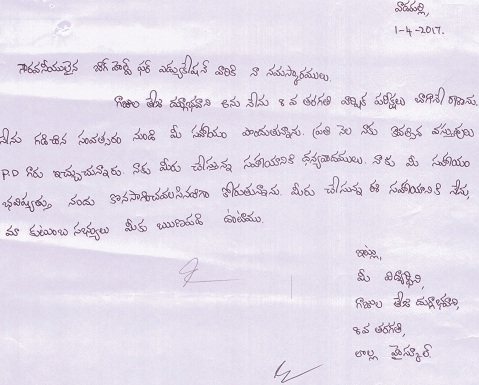 వాడపల్లి,
1-4-2017.
గౌరవనీయులైన బిగ్ హెల్ప్ ఫర్ ఎడ్యుకేషన్ వారికి నా నమస్కారములు.
గాజుల తేజ దుర్గాభవాని అను నేను 8 వ తరగతి వార్షిక పరీక్షలు బాగానే రాశాను.
నేను గడిచిన సంవత్సరం నుండి మీ సహాయం పొందుతున్నాను. ప్రతి నెల నాకు వస్తువులు
P.D గారు ఇచ్చుచున్నారు. నాకు మీరు చేస్తున్న సహాయానికి ధన్యవాదములు. నాకు మీ సహాయం
భవిష్యత్తు నందు కొనసాగించవలసినదిగా కోరుతున్నాను. మీరు చేసున్న ఈ సహాయానికి నేను,
మా కుటుంబ సభ్యులు మీకు ఋణపడి ఉంటాము.
ఇట్లు,
మీ విద్యార్థిని,
గాజుల తేజ దుర్గాభవాని,
8 వ తరగతి,
హైస్కూల్.